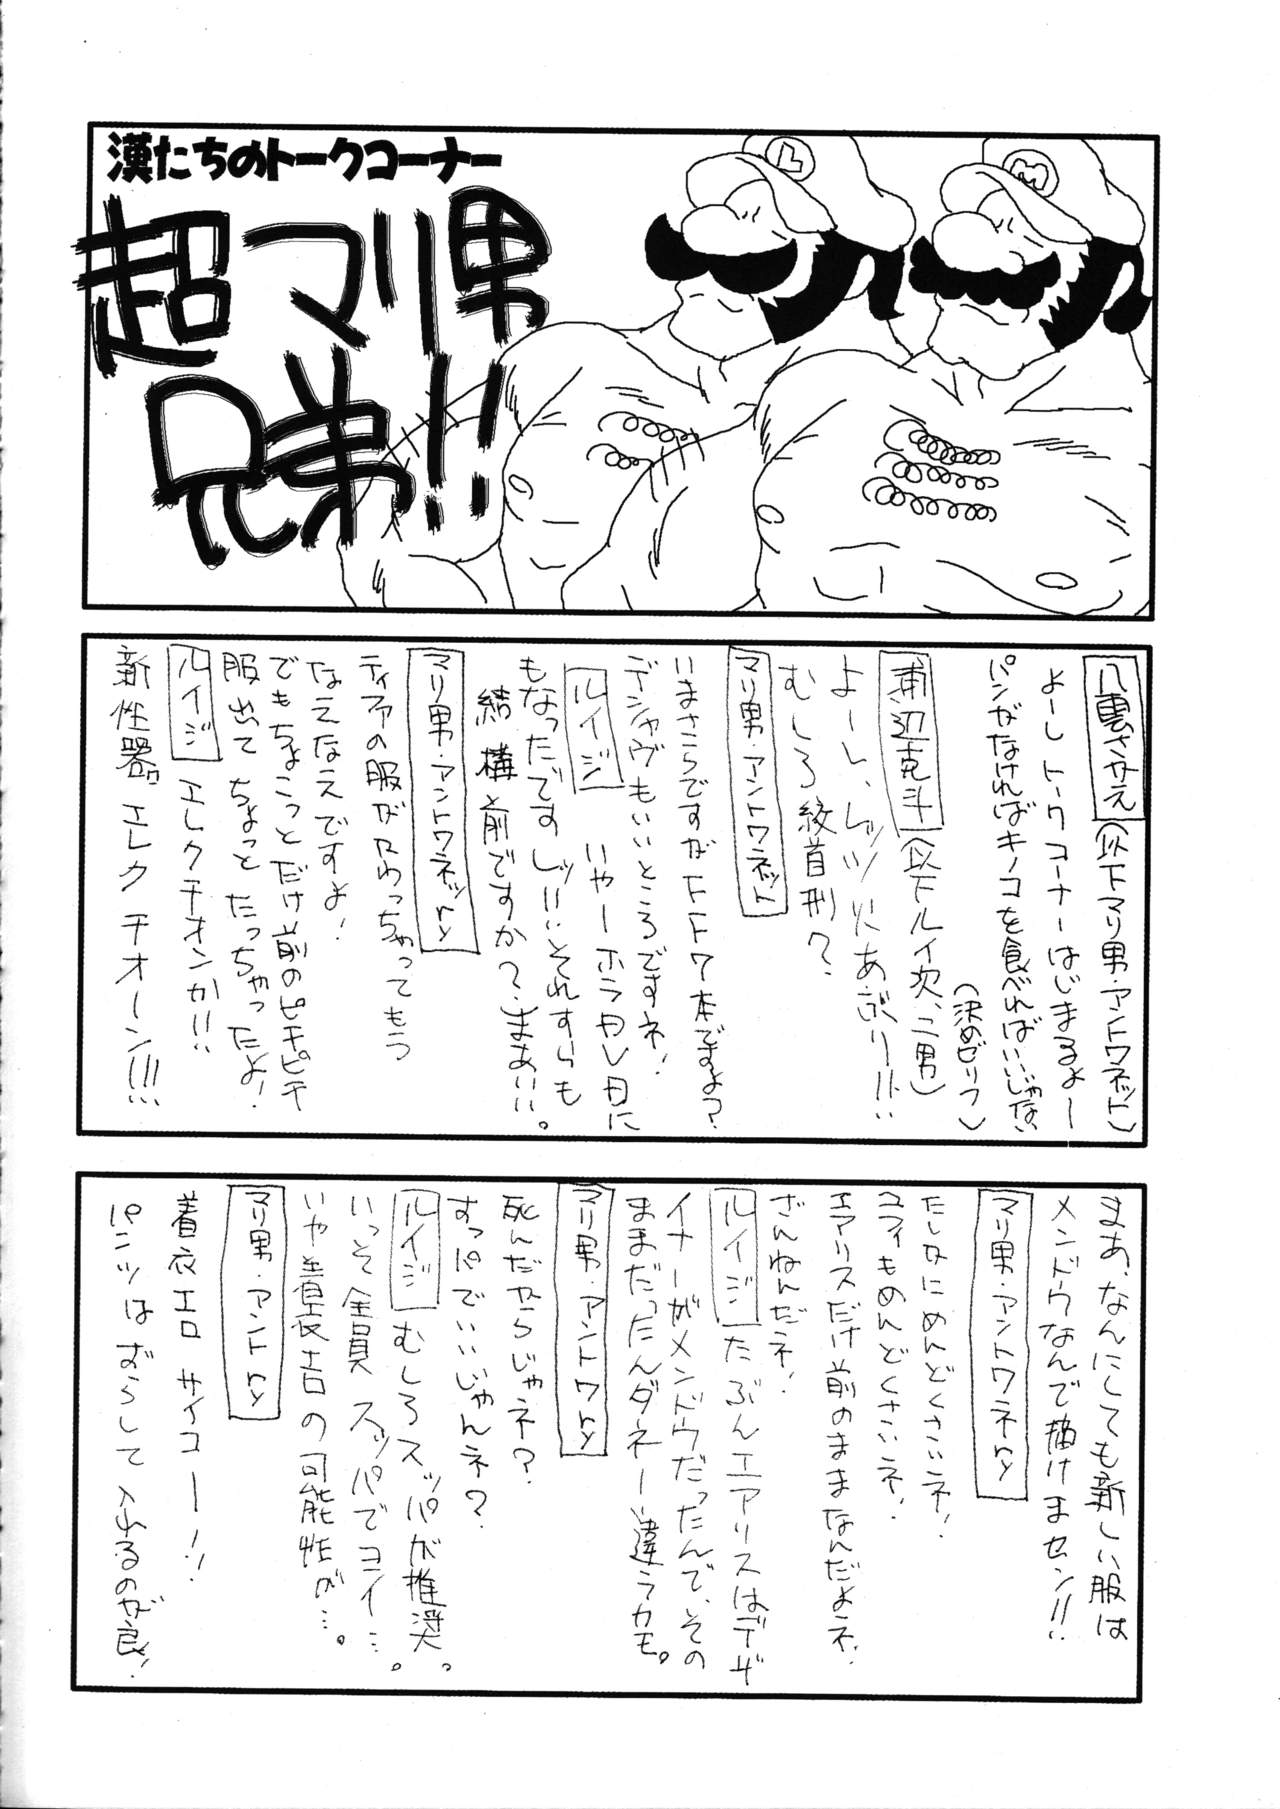 漢たちのトークコーナー
超マリ男
兄弟!!
L
M
八裏さかえ(以下マリ男・アントワネット)
よーし トークコーナーはじまるよー
パンがなければキノコを食べればいいじゃない
(決めゼリフ)
浦辺克斗(以下ルイ次、二男)
よーし、レッツ火あぶりー!!
むしろ絞首刑?
マリ男・アントワネット
いまさらですがFF7本ですよ?
デジャヴもいいところですネ!
ルイジ いやーホラDVDに
もなったですしッ!!それすらも
結構前ですか?、まあいい。
マリ男・アントワネットry
ティファの服がかわっちゃってもう
なえなえですよ!
でもちょこっとだけ前のピチピチ
服出てちょっとたっちゃったよ!
ルイジ エレクチオンか!!
新性器 エレクチオーン!!!
まあ、なんにしても新しい服は
メンドウなんで描けませセン!!
マリ男・アントワネry
たしかにめんどくさいネ!
ユフィもめんどくさいネ!
エアリスだけ前のままなんだよネ!
ざんねんだネ!
ルイジ たぶんエアリスはデザ
イナーがメンドウだったんで、その
ままだったんダネー 違うカモ。
マリ男・アントワry
死んだからじゃネ?
すっパでいいじゃんネ?
ルイジ むしろスッパが推奨。
いっそ全員スッパでコイ…。
いや着衣エロの可能性が…。
マリ男・アントry
着衣エロ サイコー!!
パンツはずらして入れるのが良!